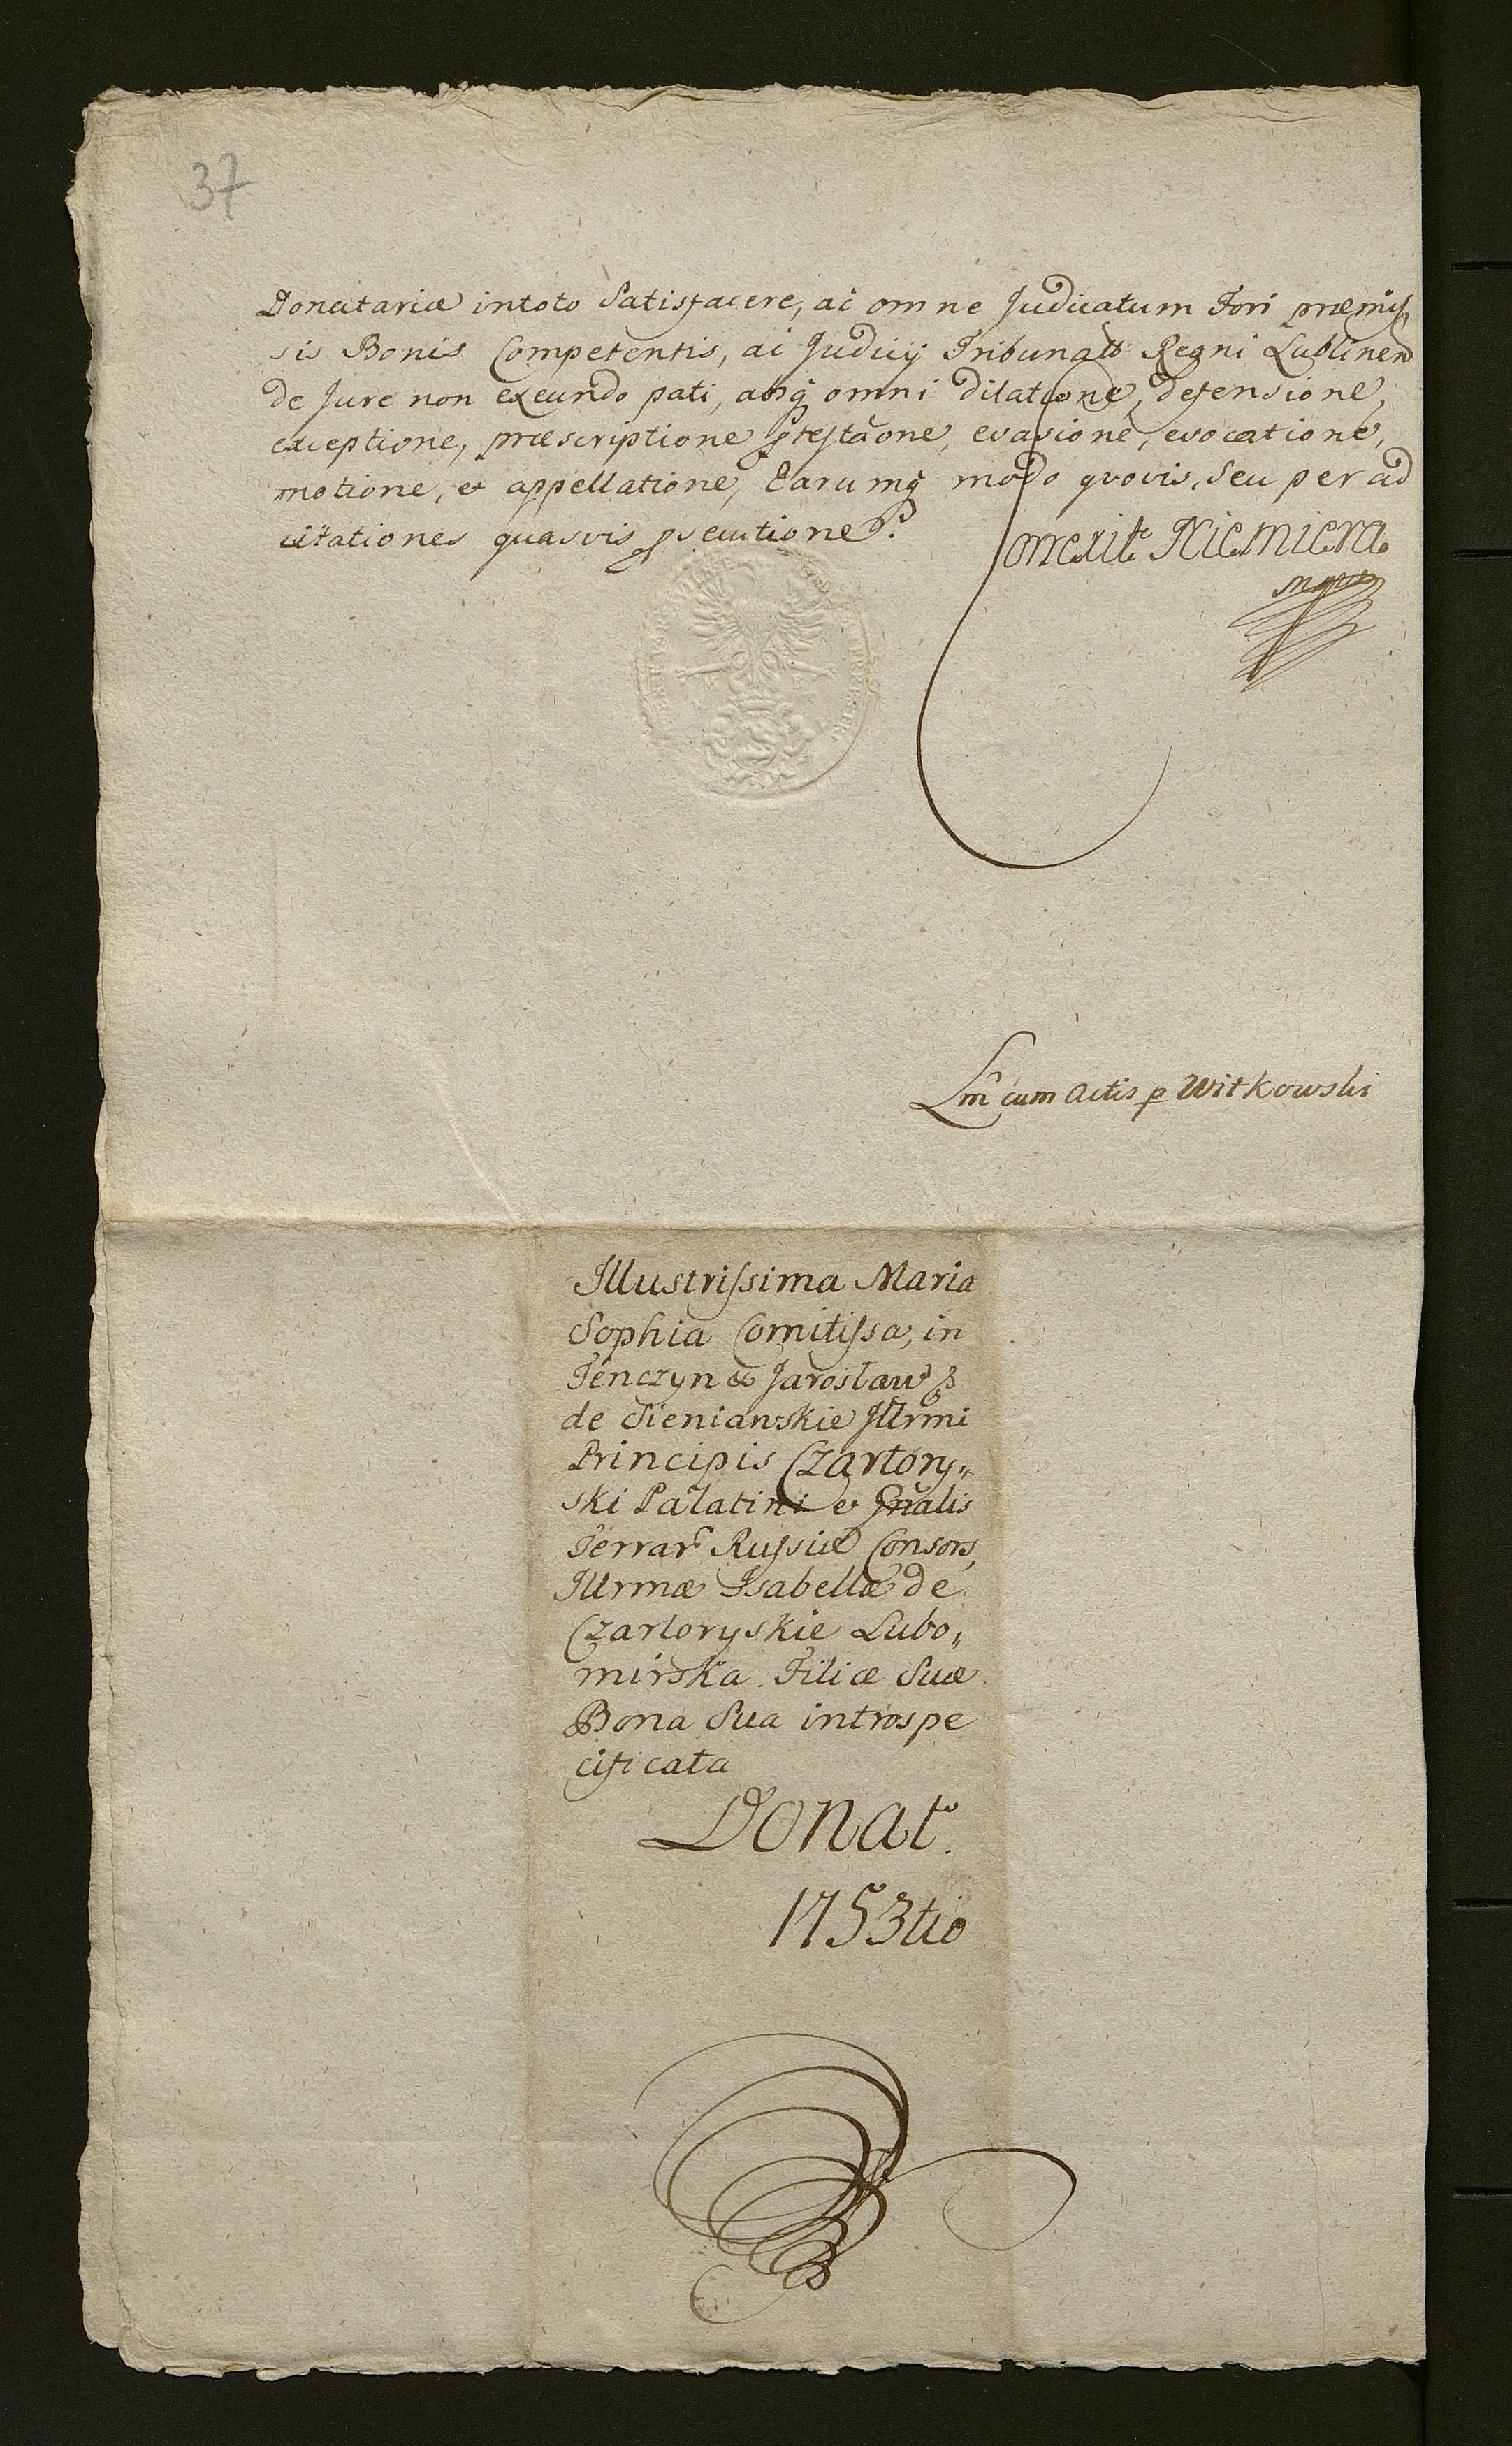 37
Donatariæ intoto Satisfacere, ac omne Judicatum Fori præmis
sis Bonis Competentis, ac Judicij Tribunalis Regni Lublinen
de Jure non exeundo pati, absq omni dilatione, defensione,
exceptione, præscriptione ptestãone, evasione, evocatione,
motione, et appellatione, Earumq modo quovis, seu per ad
citationes quasvis psecutione.
Correxit Niemiera
mpp
Lm cum Actis p Witkowski
Illustrissima Maria
Sophia Comitissa, in
Tenczyn & Jaroslaw
de Sieniawskie Illrmi
Principis Czartory„
ski Palatini et Gnalis
Terrar Russiæ Consors,
Illrmæ Isabellæ de
Czartoryskie Lubo„
mirska Filiæ Suæ
Bona Sua introspe
cificata
Donat.
1753tio